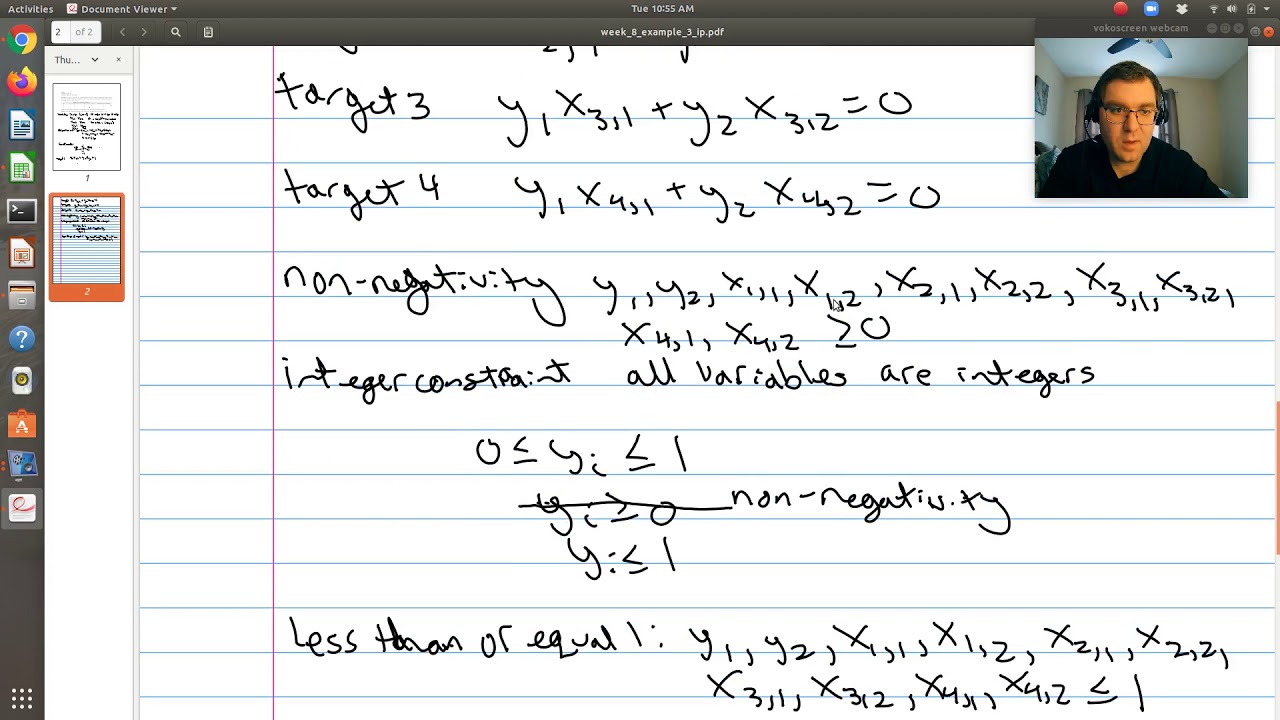 Activities Document Viewer Tue 10:55 AM
2 of 2 week_8_example_3_ip.pdf
vokoscreen webcam
Thu...
1
2
target 3 y₁ x₃,₁ + y₂ x₃,₂ = 0
target 4 y₁ x₄,₁ + y₂ x₄,₂ = 0
non-negativity y₁, y₂, x₁,₁, x₁,₂, x₂,₁, x₂,₂, x₃,₁, x₃,₂,
x₄,₁, x₄,₂ ≥ 0
integer constraint all variables are integers
0 ≤ yᵢ ≤ 1
yᵢ ≥ 0 non-negativity
yᵢ ≤ 1
Less than or equal 1: y₁, y₂, x₁,₁, x₁,₂, x₂,₁, x₂,₂,
x₃,₁, x₃,₂, x₄,₁, x₄,₂ ≤ 1